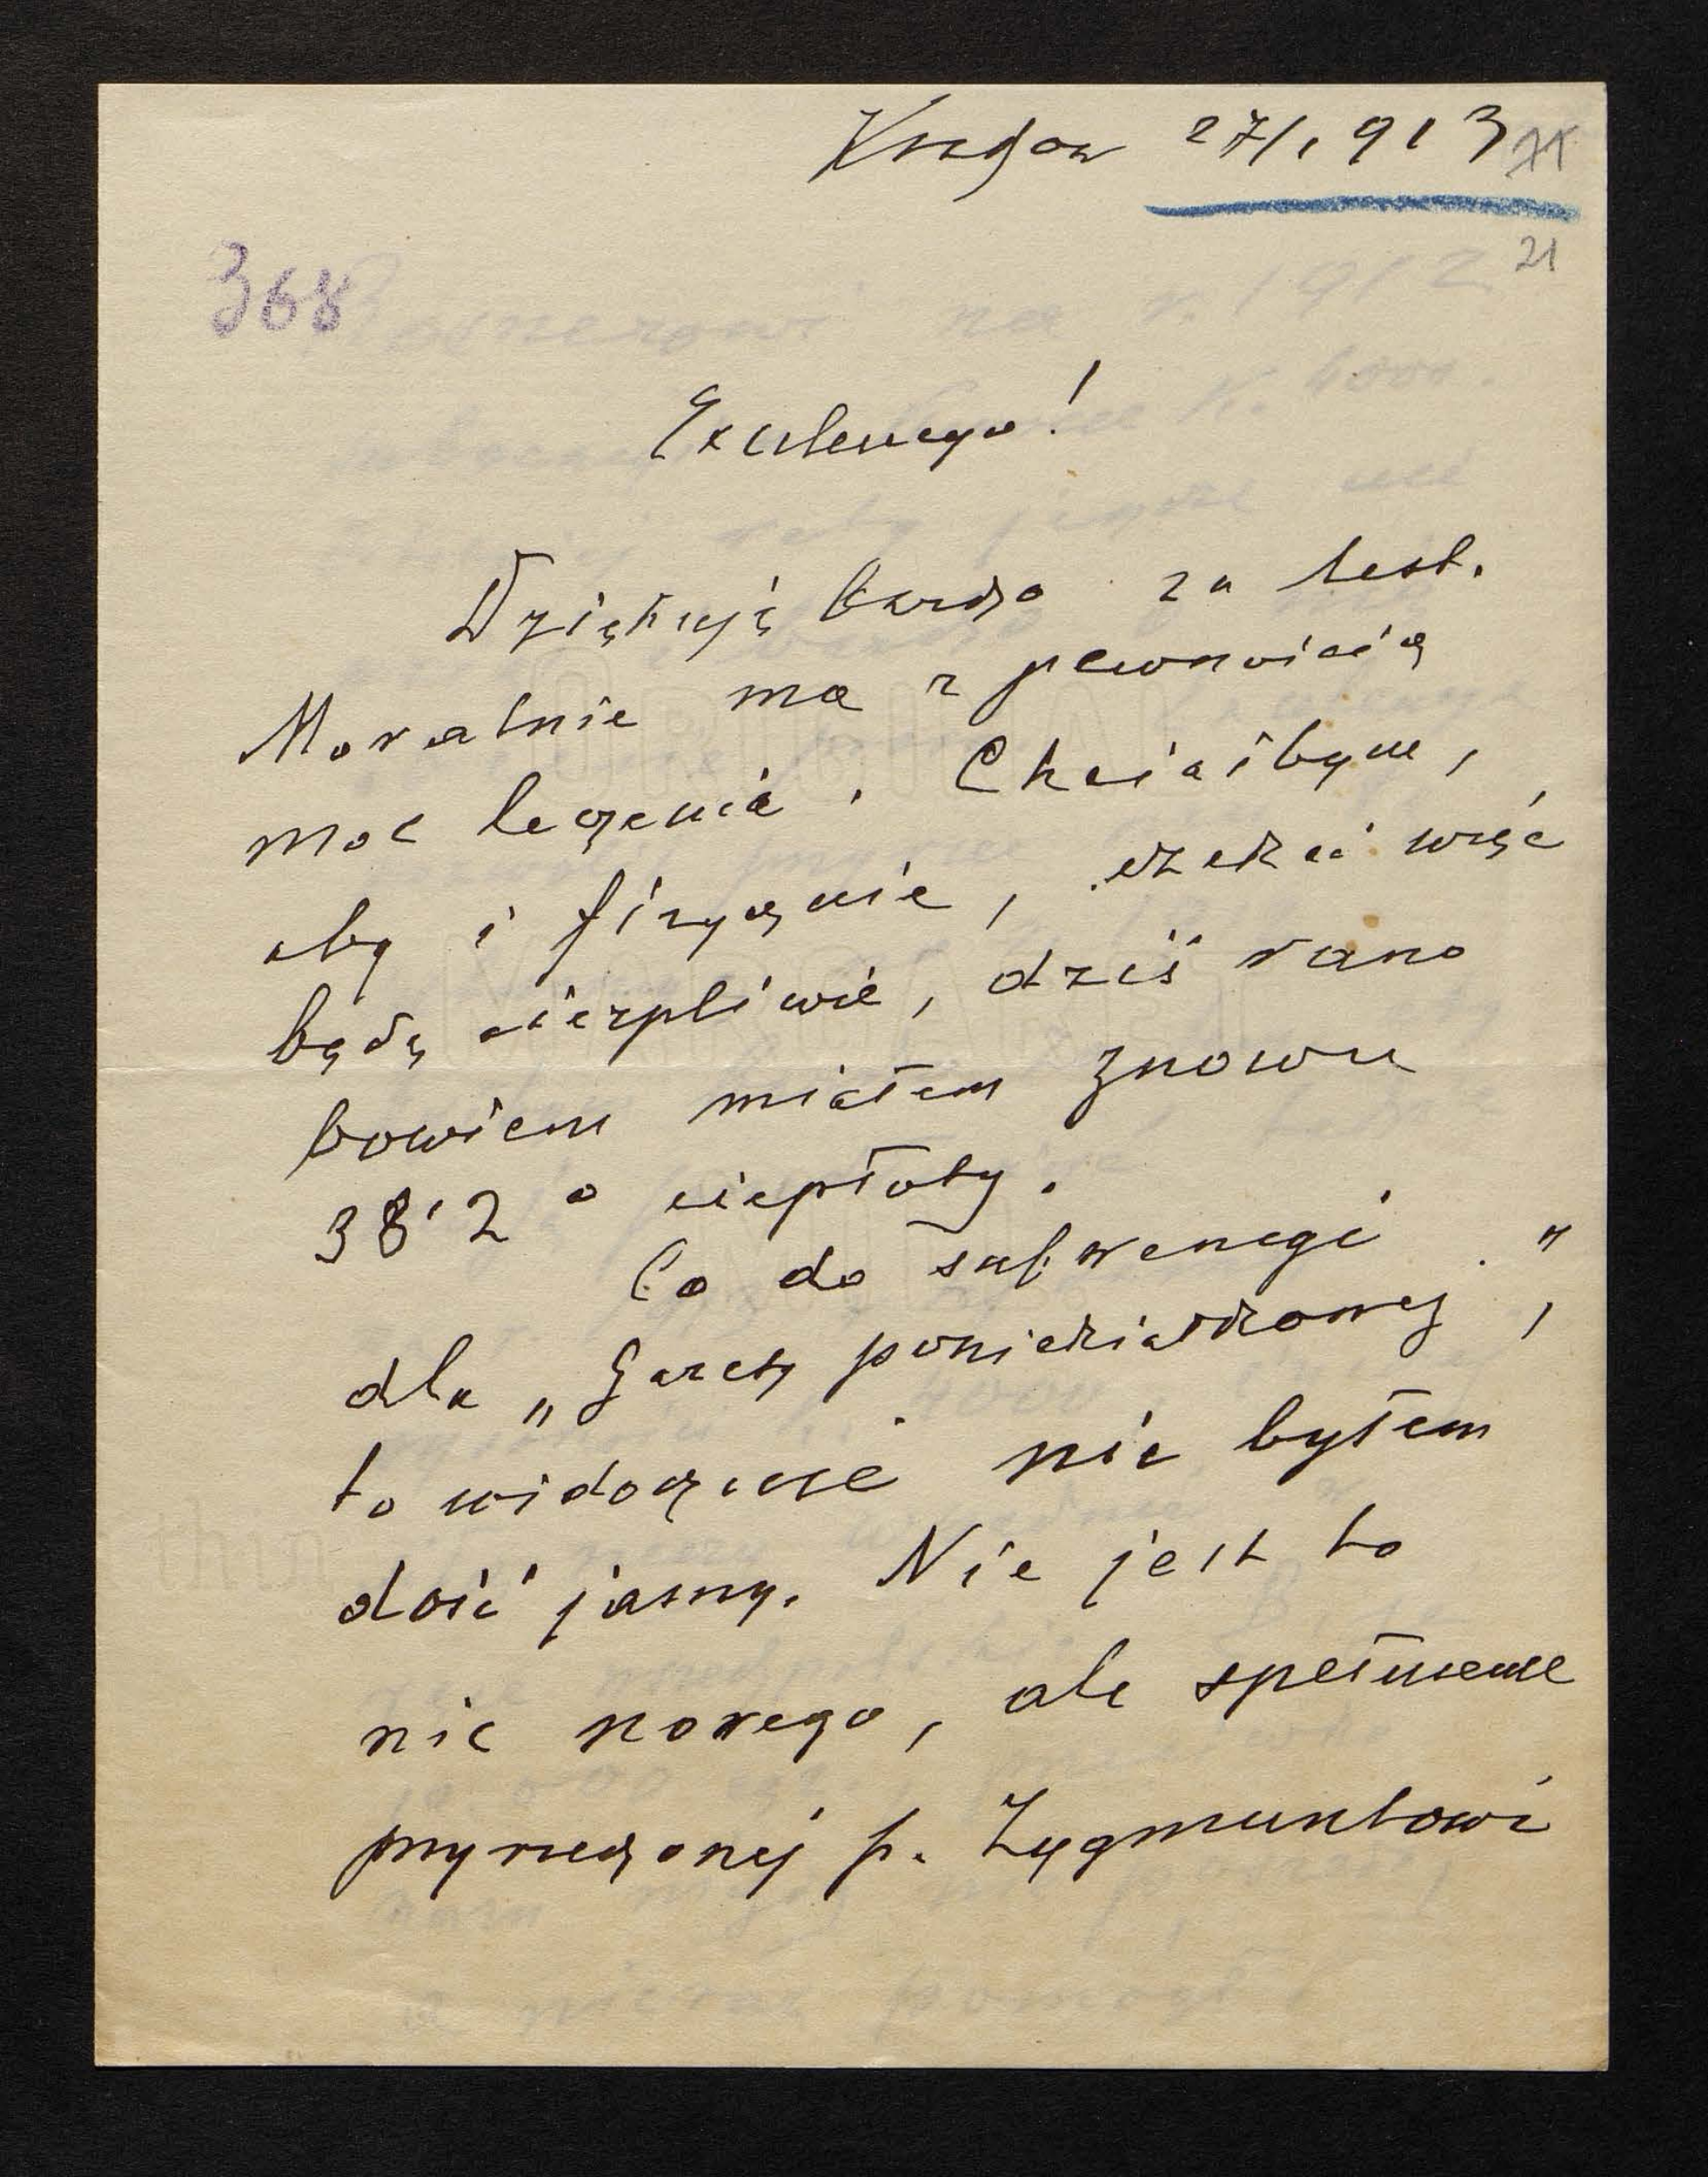 Kraków 27/1 913
71
21
368
Excelencyo!
Dziękuję bardzo za list.
Moralnie ma z pewnością
moc leczenia. Chciałbym,
aby i fizycznie, czekać więc
będę cierpliwie, dziś rano
bowiem miałem znowu
38'2° ciepłoty.
Co do subwencyi
dla „Gazety poniedziałkowej",
to widocznie nie byłem
dość jasny. Nie jest to
nic nowego, ale spełnienie
przyrzeczonej p. Zygmuntowi